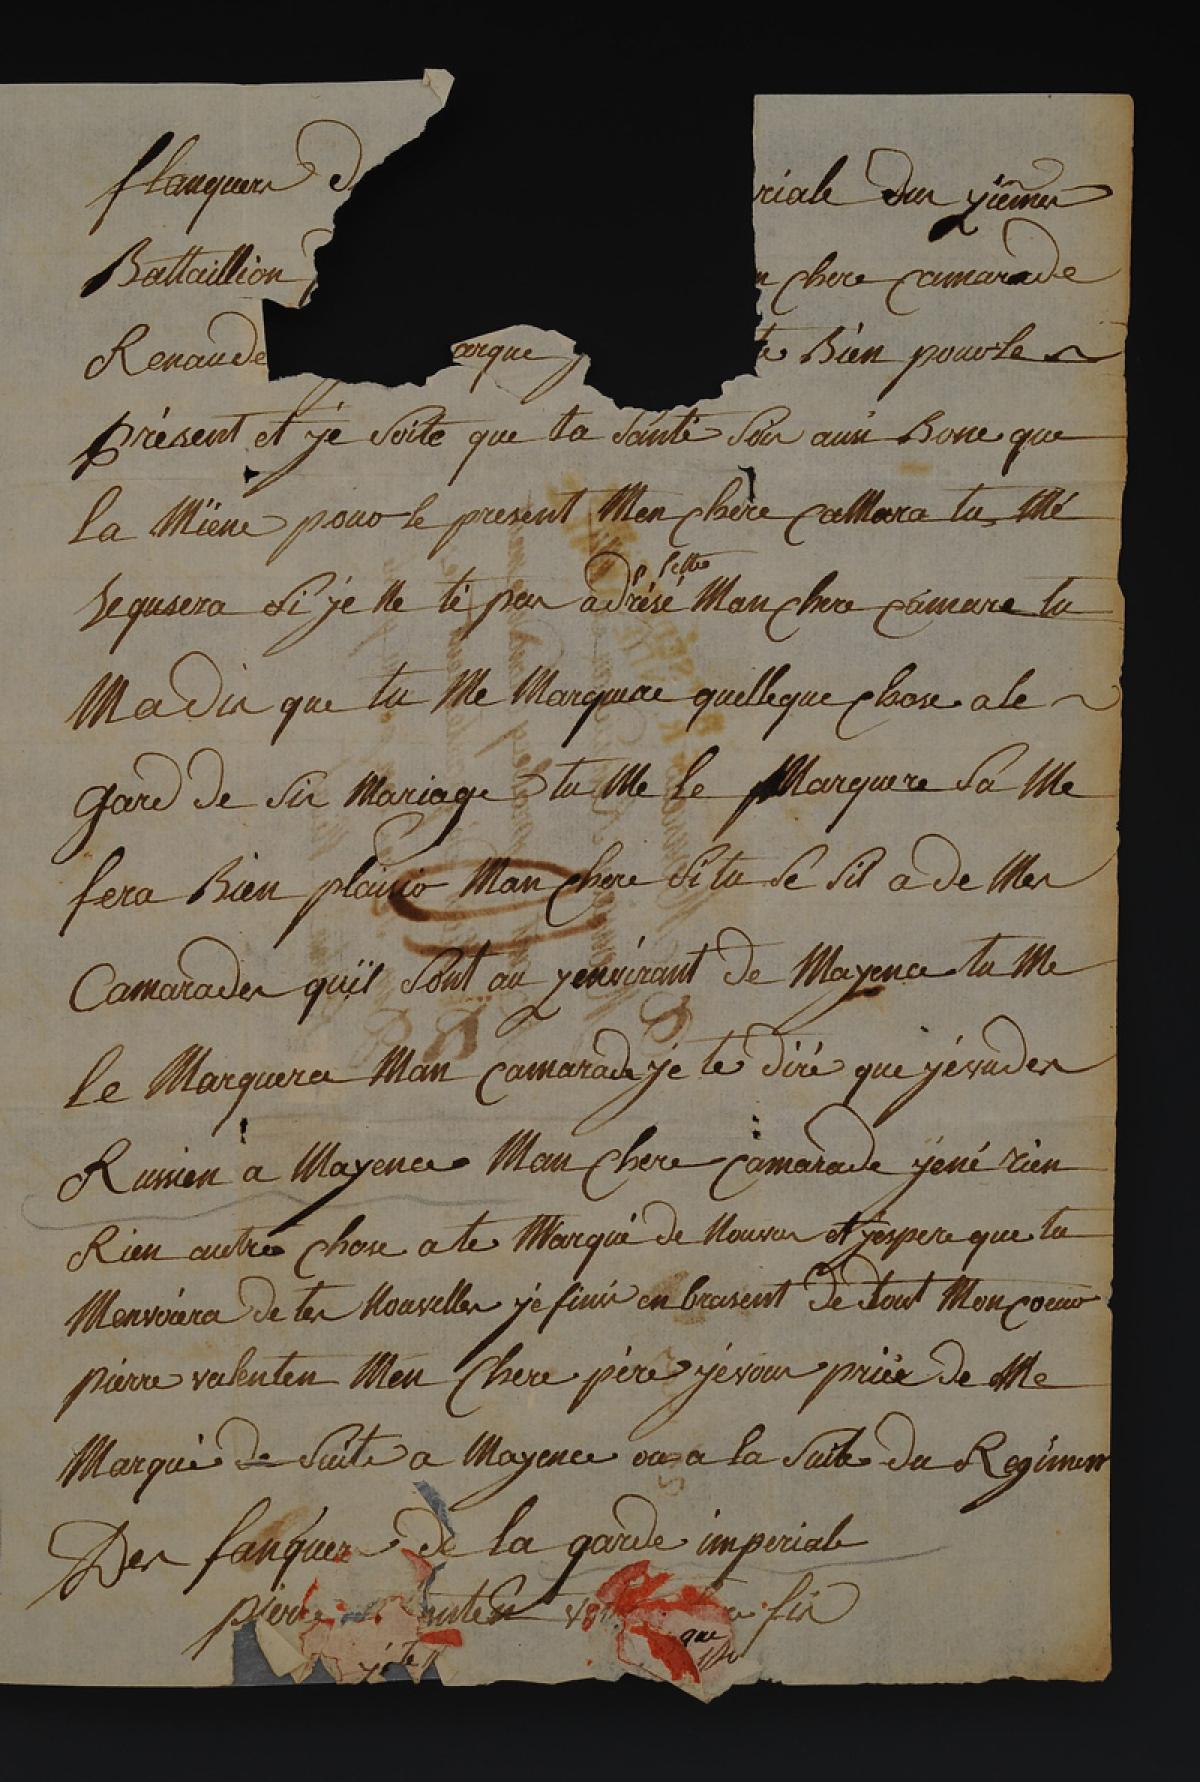 flanquers d riale dus yiêmes
Battaillion n chere camarade
Renaude arque Bien pour le
présent et je soite que ta santé sois aussi Bone que
la Miene pour le present Mon chere caMara tu Mé
sequsera si je Ne té pas adrésé p lettre Mon chere camare tu
Ma dis que tu Me Marquere quelleque chose a le
gard de sis Mariage tu Me le Marquere sa Me
fera Bien plaisir Mon chere si tu se sil a de Mes
Camarades quil sont au yenvirant de Mayence tu Me
le Marquera Mon camarade je te diré que jé vu des
Russien a Mayence Mon chere camarade je né rien
Rien autre chose a te Marqué de Nouvos et jespere que tu
Menvoiera de tes Nouvelles je finis en brasent de tout Mon coeur
pierre valenten Mon chere pére je vous prie de Me
Marqué de suite a Mayence ou a la suite du Regiment
Des fanquers de la garde imperiale
pierre fis
je te que